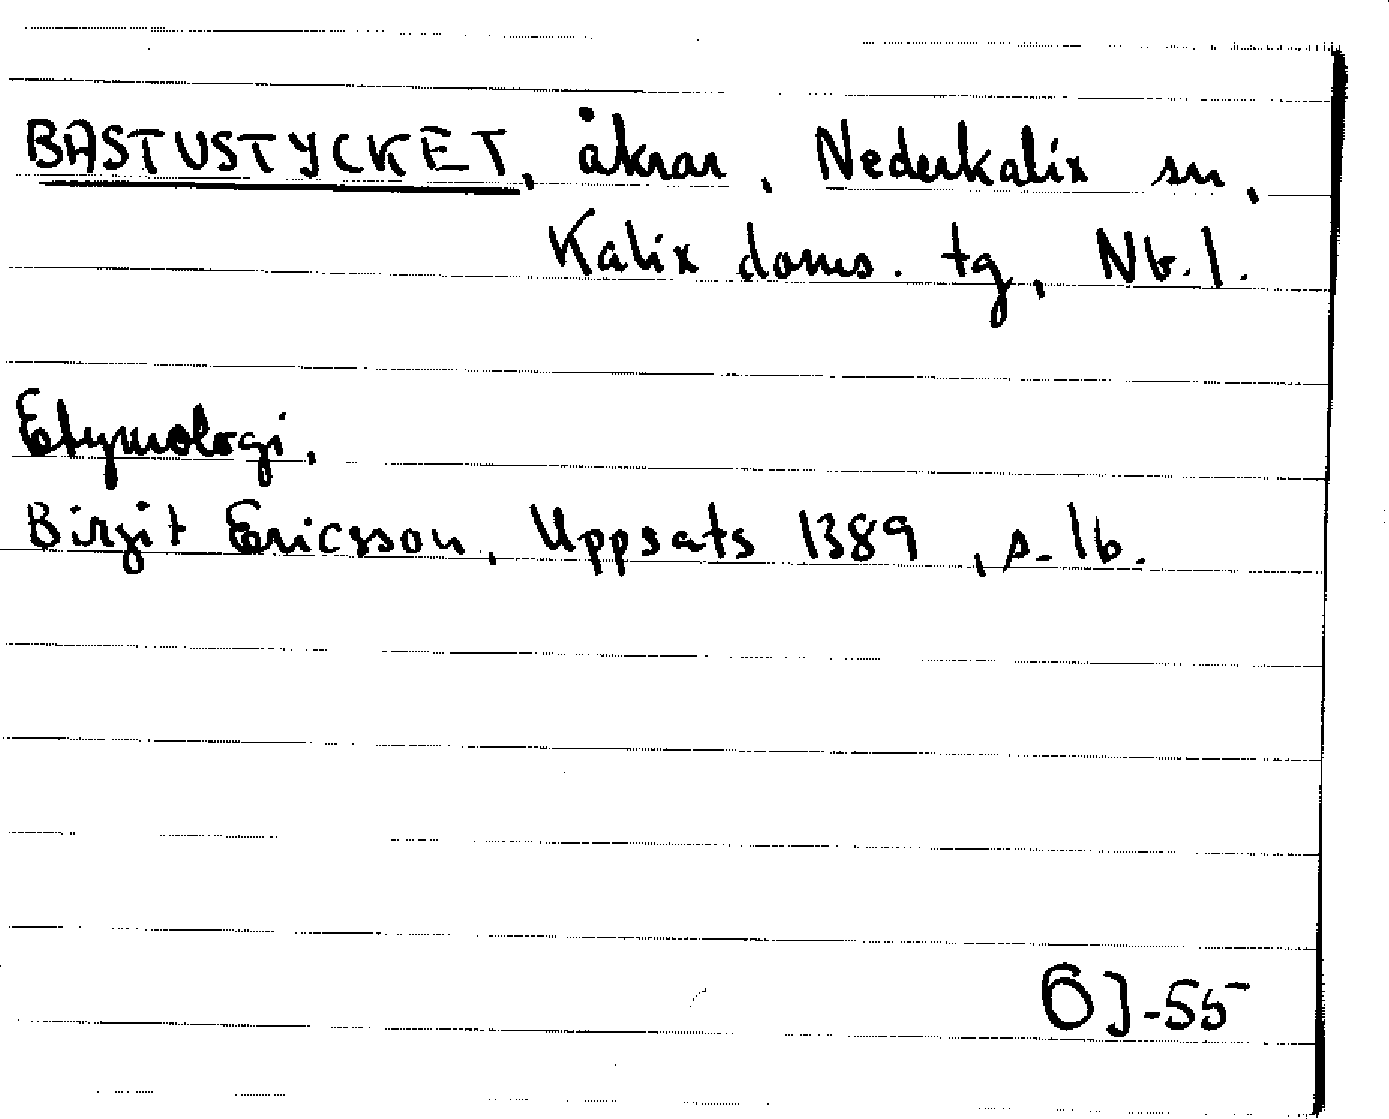 BASTUSTYCKET, åkrar, Nederkalix sn,
Kalix doms. tg, Nb. l.
Etymologi.
Birgit Ericsson, Uppsats 1389, s. 16.
BJ-55